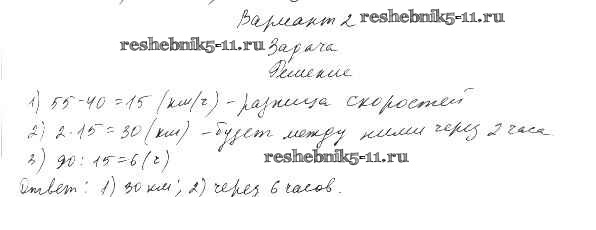 Вариант 2 reshebnik5-11.ru
reshebnik5-11.ru Задача
Решение
1) 55-40=15 (км/ч) - разница скоростей
2) 2·15=30 (км) - будет между ними через 2 часа.
3) 90:15=6 (ч) reshebnik5-11.ru
Ответ: 1) 30 км; 2) через 6 часов.